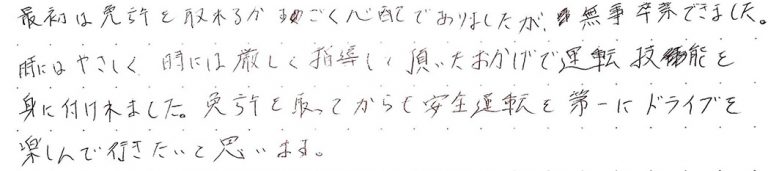 最初は免許を取れるかすごく心配でありましたが、無事卒業できました。
時にはやさしく 時には厳しく指導し頂いたおかげで運転技能を
身に付けれました。免許を取ってからも安全運転を第一にドライブを
楽しんで行きたいと思います。